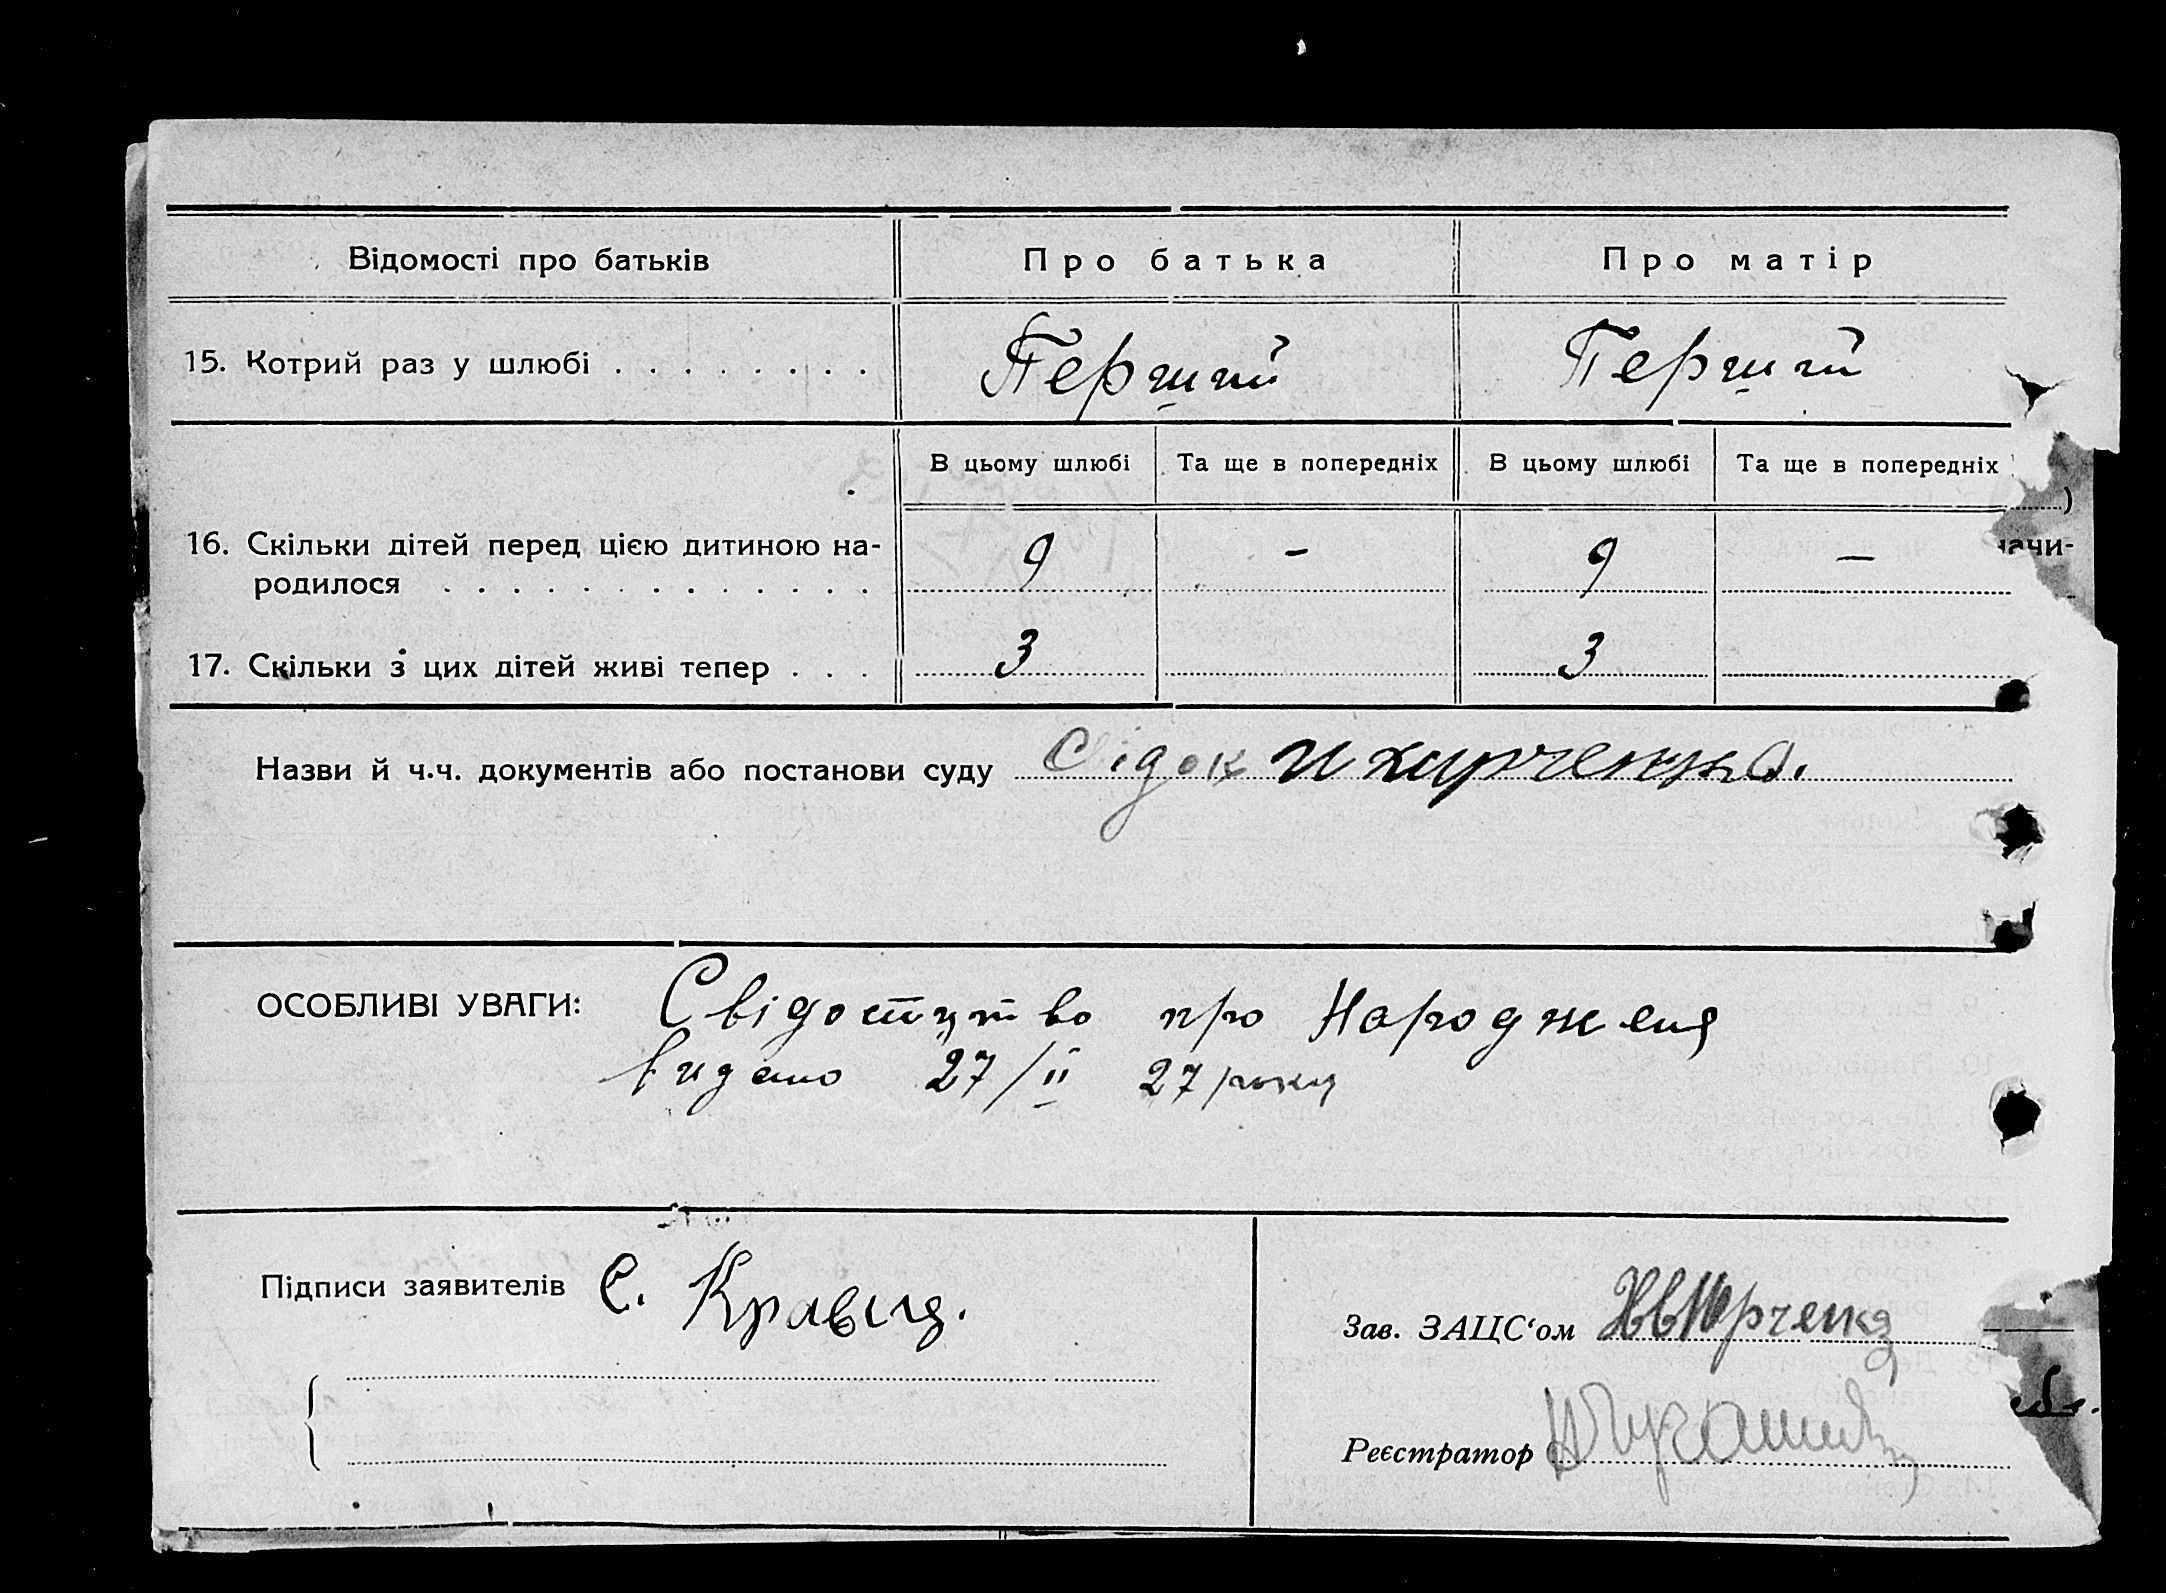 Відомості про батьків Про батька Про матір
15. Котрий раз у шлюбі . . . . . . . . Перший Перший
В цьому шлюбі Та ще в попередніх В цьому шлюбі Та ще в попередніх
)
16. Скільки дітей перед цією дитиною на- 9 - 9 — ачи-
родилося . . . . . . . . . . . . .
17. Скільки з цих дітей живі тепер . . . 3 3
Назви й ч.ч. документів або постанови суду
ОСОБЛИВІ УВАГИ: Свідоцтво про Народженя
видано 27/II 27 року
Підписи заявителів Є. Кравец.
Зав. ЗАЦС‘ом Юрченко
Реєстратор